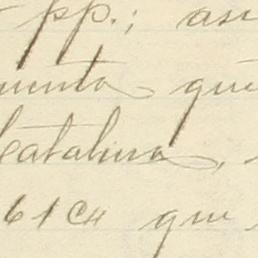 pp.; asi
uenta que
Catalina,
61 cu que